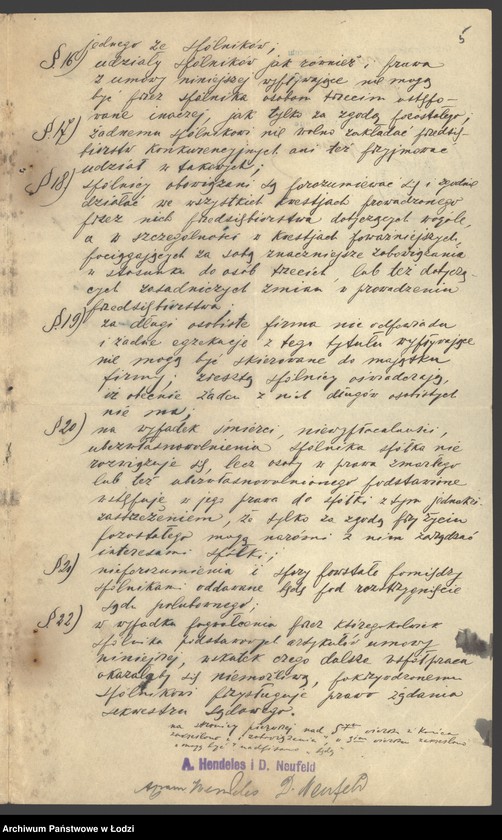 5
jednego ze spólników;
§ 16) udziały spólników jak również i prawa
z umowy niniejszej wypływające nie mogą
być przez spólnika osobom trzecim odstępo-
wane inaczej, jak tylko za zgodą pozostałego;
§ 17) żadnemu spólnikowi nie wolno zakładać przedsię-
biorstw konkurencyjnych ani też przyjmować
udział w takowych;
§ 18) spólnicy obowiązani są porozumiewać się i zgodnie
działać we wszystkich kwestjach prowadzonego
przez nich przedsiębiorstwa dotyczących wogóle,
a w szczególności w kwestjach poważniejszych,
pociągających za sobą znaczniejsze zobowiązania
w stosunku do osób trzecich, lub też dotyczą-
cych zasadniczych zmian w prowadzeniu
przedsiębiorstwa;
§ 19) za długi osobiste firma nie odpowiada
i żadne egzekucje z tego tytułu wypływające
nie mogą być skierowane do majątku
firmy; zresztą spólnicy oświadczają,
że obecnie żaden z nich długów osobistych
nie ma;
§ 20) na wypadek śmierci, niewypłacalności,
ubezwłasnowolnienia spólnika spółka nie
rozwiązuje się, lecz osoby w prawa zmarłego
lub też ubezwłasnowolnionego podstawione
wstępują w jego prawa do spółki z tym jednakże
zastrzeżeniem, że tylko za zgodą przy życiu
pozostałego mogą narówni z nim zarządzać
interesami spółki;
§ 21) nieporozumienia i spory powstałe pomiędzy
spólnikami oddawane będą pod rozstrzygnięcie
sądu polubownego;
§ 22) w wypadku pogwałcenia przez któregokolwiek
spólnika artykułów umowy
niniejszej, wskutek czego dalsza współpraca
okazałaby się niemożliwą, pokrzywdzonemu
spólnikowi przysługuje prawo żądania
sekwestru sądowego.
na stronicy pierwszej nad 5tym wierszem z końca
"mogą być" nadpisano "będą"
A. Hendeles i D. Neufeld
Abram Hendeles D. Neufeld
Archiwum Państwowe w Łodzi